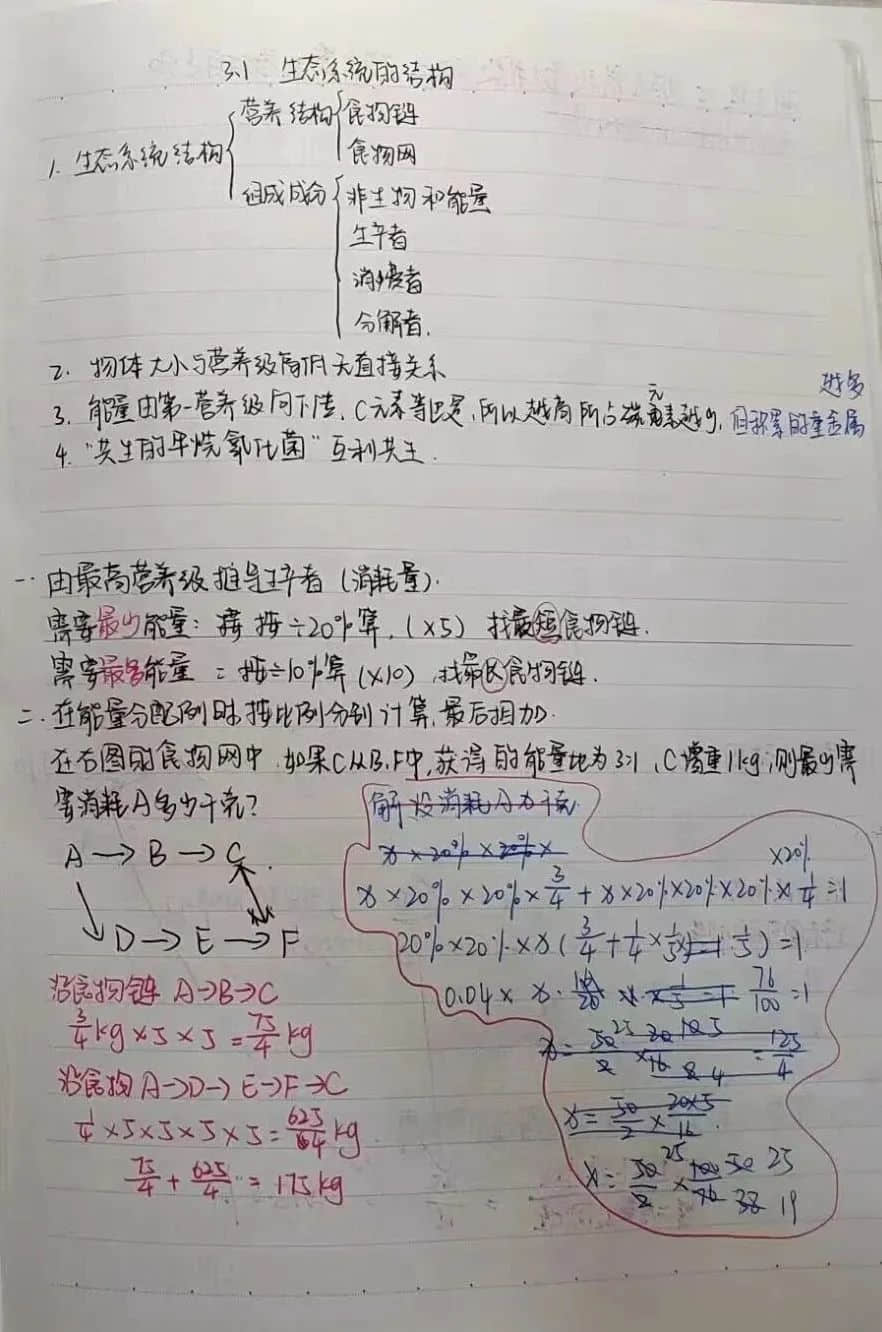 3.1 生态系统的结构
1. 生态系统结构
营养结构
食物链
食物网
组成成分
非生物和能量
生产者
消费者
分解者.
2. 物体大小与营养级高低无直接关系
越多
3. 能量由第一营养级向下传, C元素等也是, 所以越高所占碳元素越少, 但积累的重金属
4. "共生的甲烷氧化菌" 互利共生.
一. 由最高营养级推导生产者 (消耗量).
需要最少能量: 按÷20%算, (×5) 找最短食物链.
需要最多能量 = 按÷10%算 (×10), 找最长食物链.
二. 在能量分配例时按比例分别计算, 最后相加.
在右图的食物网中, 如果C从B、F中, 获得的能量比为3:1, C增重1kg, 则最少需
要消耗A多少千克?
解 设消耗A为千克
A → B → C.
D → E → F
x × 20% × 20% ×
×20%
x × 20% × 20% × 3/4 + x × 20% × 20% × 20% × 1/4 = 1
20% × 20% × x (3/4 + 1/4 × 1/5 × 1/5) = 1
0.04 × x · 76/100 = 1
沿食物链 A→B→C
3/4 kg × 5 × 5 = 75/4 kg
沿食物 A→D→E→F→C
1/4 × 5 × 5 × 5 × 5 = 625/4 kg
75/4 + 625/4 = 175 kg
x = 50/2 × 20×5/16